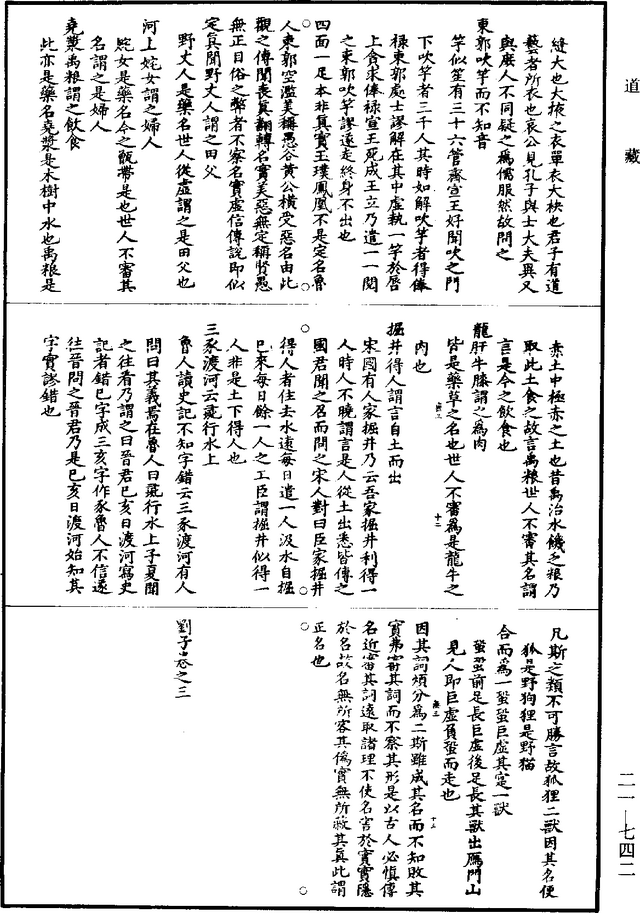 道藏
縫大也大掖之衣單衣大袂也君子有道
藝者所衣也哀公見孔子與士大夫異又
與庶人不同疑之為儒服然故問之
東郭吹竽而不知音
竽似笙有三十六管齊宣王好聞吹之門
下吹竽者三千人其時如解吹竽者得俸
祿東郭處士謬解在其中虛執一竽於唇
上貪求俸祿宣王死成王立乃遣一一閱
之東郭吹竽謬遂走終身不出也
四面一足本非真實玉璞鳳凰不是定名魯
人東郭空濫美稱愚谷黃公橫受惡名由此
觀之傳聞喪真翻轉名實美惡無定稱賢愚
無正目俗之弊者不察名實虛信傳說即似
定真聞野丈人謂之田父
野丈人是藥名世人從虛謂之是田父也
河上姹女謂之婦人
姹女是藥名今之甑帶是也世人不審其
名謂之是婦人
堯漿禹粮謂之飲食
此亦是藥名堯漿是木樹中水也禹粮是
赤土中極赤之土也昔禹治水饑乏粮乃
取此土食之故言禹粮世人不審其名謂
言是今之飲食也
龍肝牛膝謂之為肉
皆是藥草之名也世人不審為是龍牛之
十二
肉也
掘井得人謂言自土而出
宋國有人家掘井乃云吾家掘井利得一
人時人不曉謂言是人從土出悉皆傳之
國君聞之召而問之宋人對曰臣家掘井
得人者住去水遠每日遣一人汲水自掘
已來每日餘一人之工臣謂掘井似得一
人非是土下得人也
三豕渡河云彘行水上
魯人讀史記不知字錯云三豕渡河有人
問曰其義焉在魯人曰彘行水上子夏聞
之往看乃謂之曰晉君己亥日渡河寫史
記者錯已字成三亥字作豕魯人不信遂
往晉問之晉君乃是已亥日渡河始知其
字實謬錯也
凡斯之類不可勝言故狐狸二獸因其名便
狐是野狗狸是野猫
合而為一蛩蛩巨虛其寔一獸
蛩蛩前足長巨虛後足長其獸出鴈門山
見人即巨虛負蛩而走也
因其詞煩分為二斯雖成其名而不知敗其
實弗審其詞而不察其形是以古人必慎傳
名近審其詞遠取諸理不使名害於實實隱
於名故名無所容其僞實無所蔽其真此謂
正名也
劉子卷之三
二一—七四二